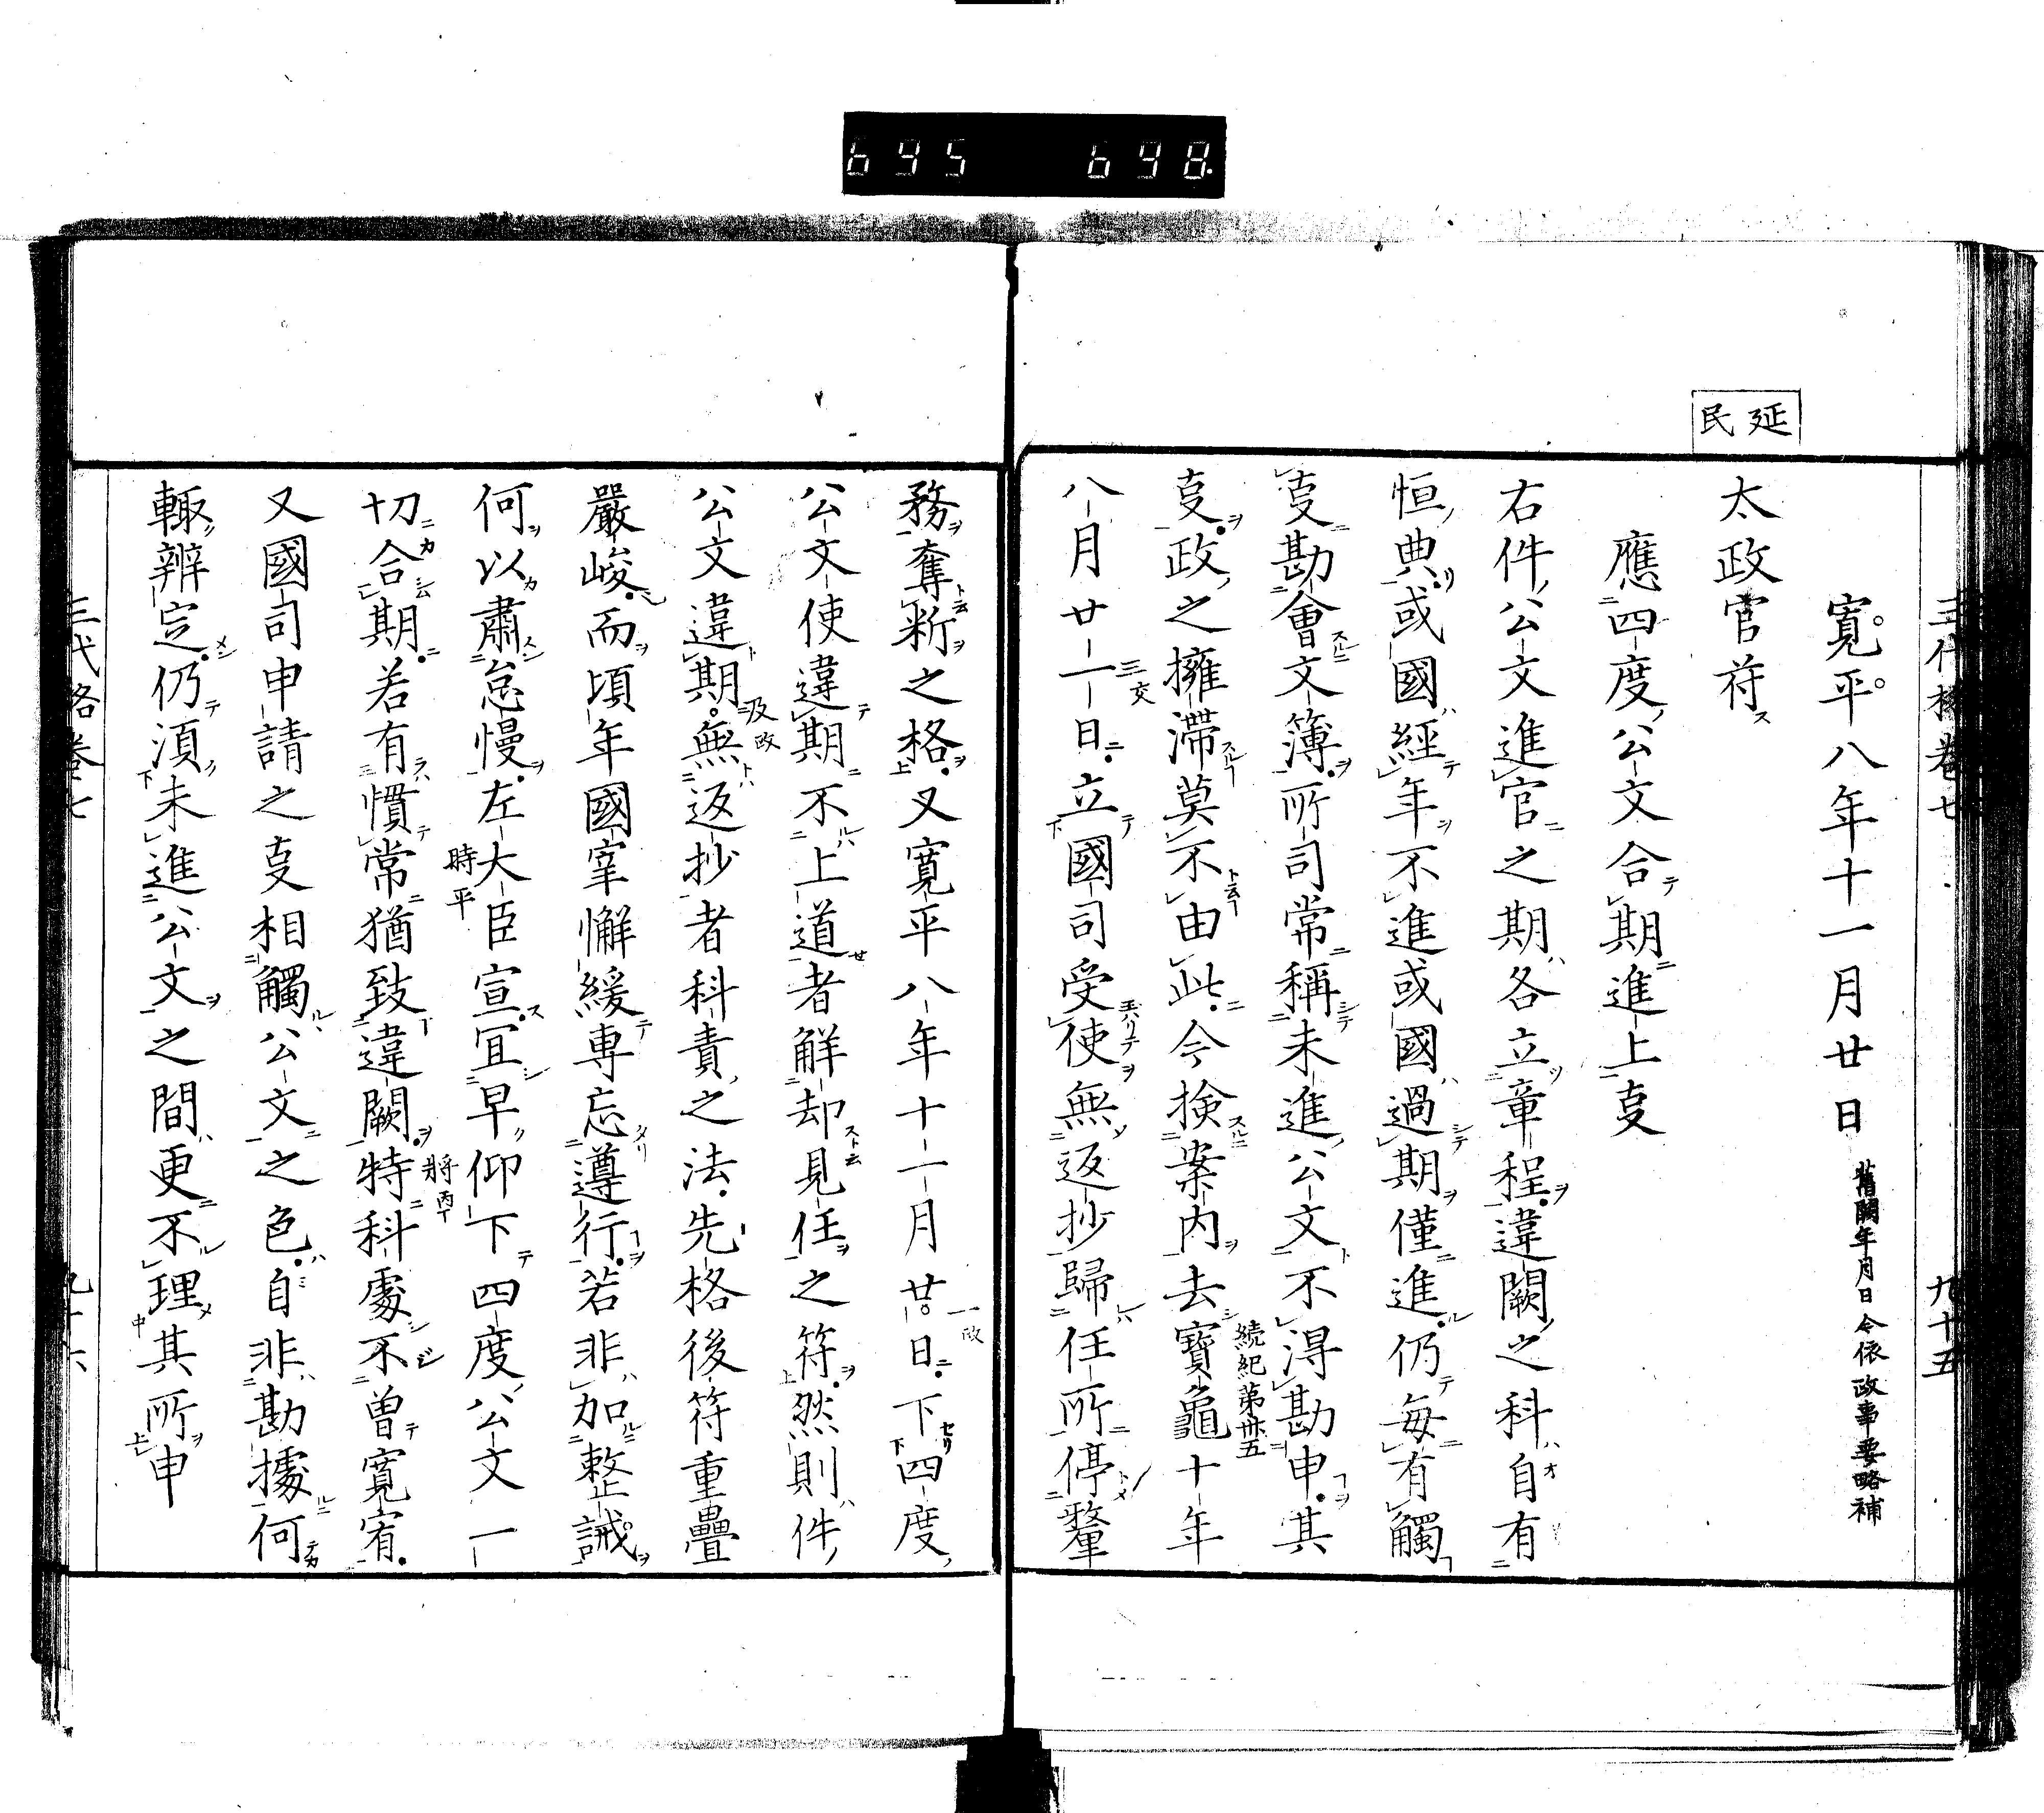 695 698
延民
三代格卷七 九十五
寛平八年十一月廿日 舊闕年月日今依政事要略補
太政官符
應四度公文合期進上事
右件公文進官之期各立章程違闕之科自有
恒典或國經年不進或國過期僅進仍每有觸
事勘會文簿所司常稱未進公文不得勘申其
事政之擁滯莫不由此今検案内去寶龜十年
続紀第卅五
八月廿一日立國司受使無返抄歸任所停釐
三交
務奪新之格又寛平八年十一月廿日下四度
一政
公文使違期不上道者解却見任之符然則件
公文違期無返抄者科責之法先格後符重疊
及政
嚴峻而頃年國宰懈緩専忘遵行若非加整誡
何以肅怠慢左大臣宣冝早仰下四度公文一
時平
切合期若有慣常猶致違闕特科處不曽寛宥
將丙
又國司申請之事相觸公文之色自非勘據何
輙辨定仍須未進公文之間更不理其所申
三代格卷七 九十六